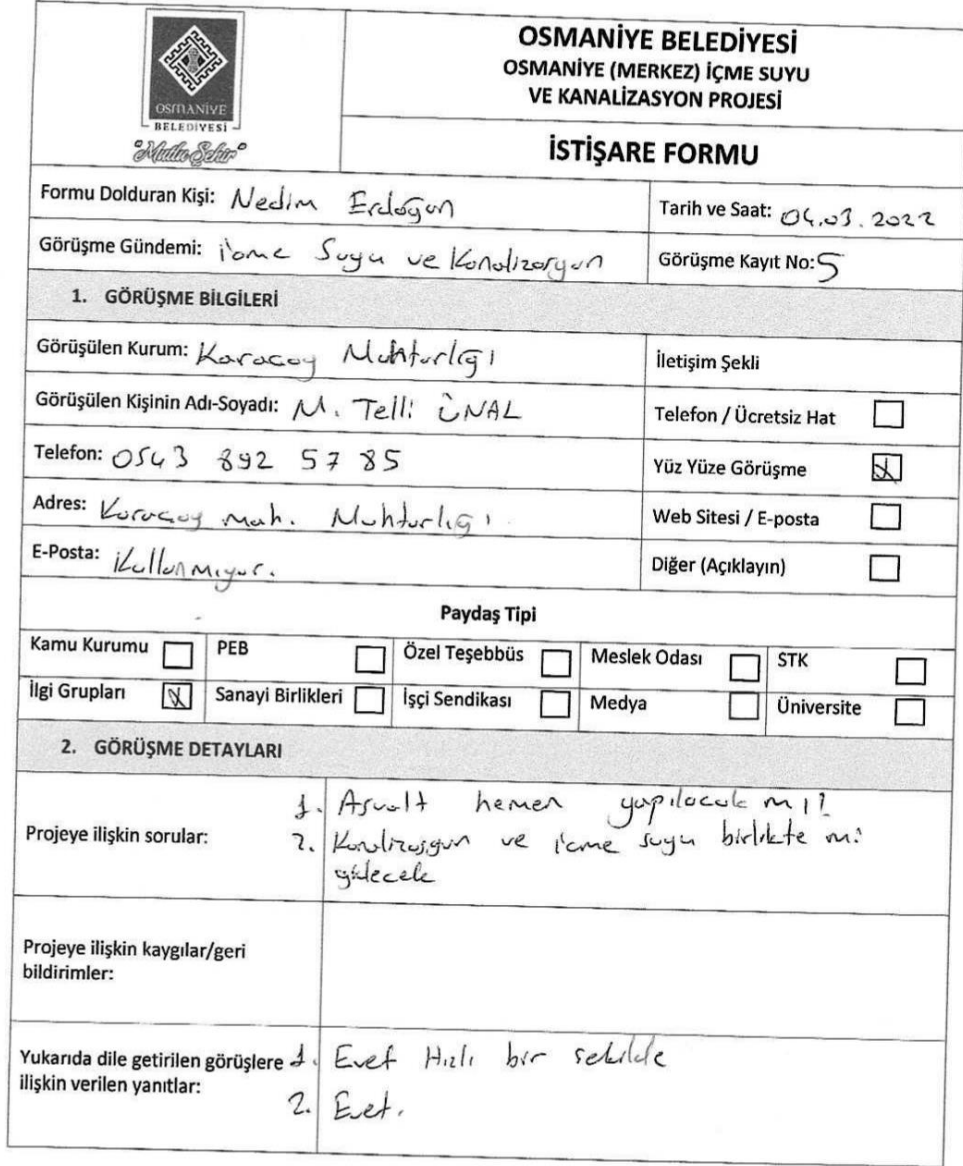 OSMANİYE
BELEDİYESİ
"Mutlu Şehir"
OSMANİYE BELEDİYESİ
OSMANİYE (MERKEZ) İÇME SUYU
VE KANALİZASYON PROJESİ
İSTİŞARE FORMU
Formu Dolduran Kişi: Nedim Erdoğan
Tarih ve Saat: 04.03.2022
Görüşme Gündemi: içme Suyu ve Kanalizasyon
Görüşme Kayıt No: 5
1. GÖRÜŞME BİLGİLERİ
Görüşülen Kurum: Karaçay Muhtarlığı
İletişim Şekli
Görüşülen Kişinin Adı-Soyadı: M. Telli ÜNAL
Telefon / Ücretsiz Hat
Telefon: 0543 892 57 85
Yüz Yüze Görüşme
Adres: Karaçay Mah. Muhtarlığı
Web Sitesi / E-posta
E-Posta: Kullanmıyor.
Diğer (Açıklayın)
Paydaş Tipi
Kamu Kurumu PEB Özel Teşebbüs Meslek Odası STK
İlgi Grupları Sanayi Birlikleri İşçi Sendikası Medya Üniversite
2. GÖRÜŞME DETAYLARI
Projeye ilişkin sorular:
1. Asvalt hemen yapılacak mı?
2. Kanalizasyon ve içme suyu birlikte mi
gidecek
Projeye ilişkin kaygılar/geri
bildirimler:
Yukarıda dile getirilen görüşlere
ilişkin verilen yanıtlar:
1. Evet Hızlı bir şekilde
2. Evet.